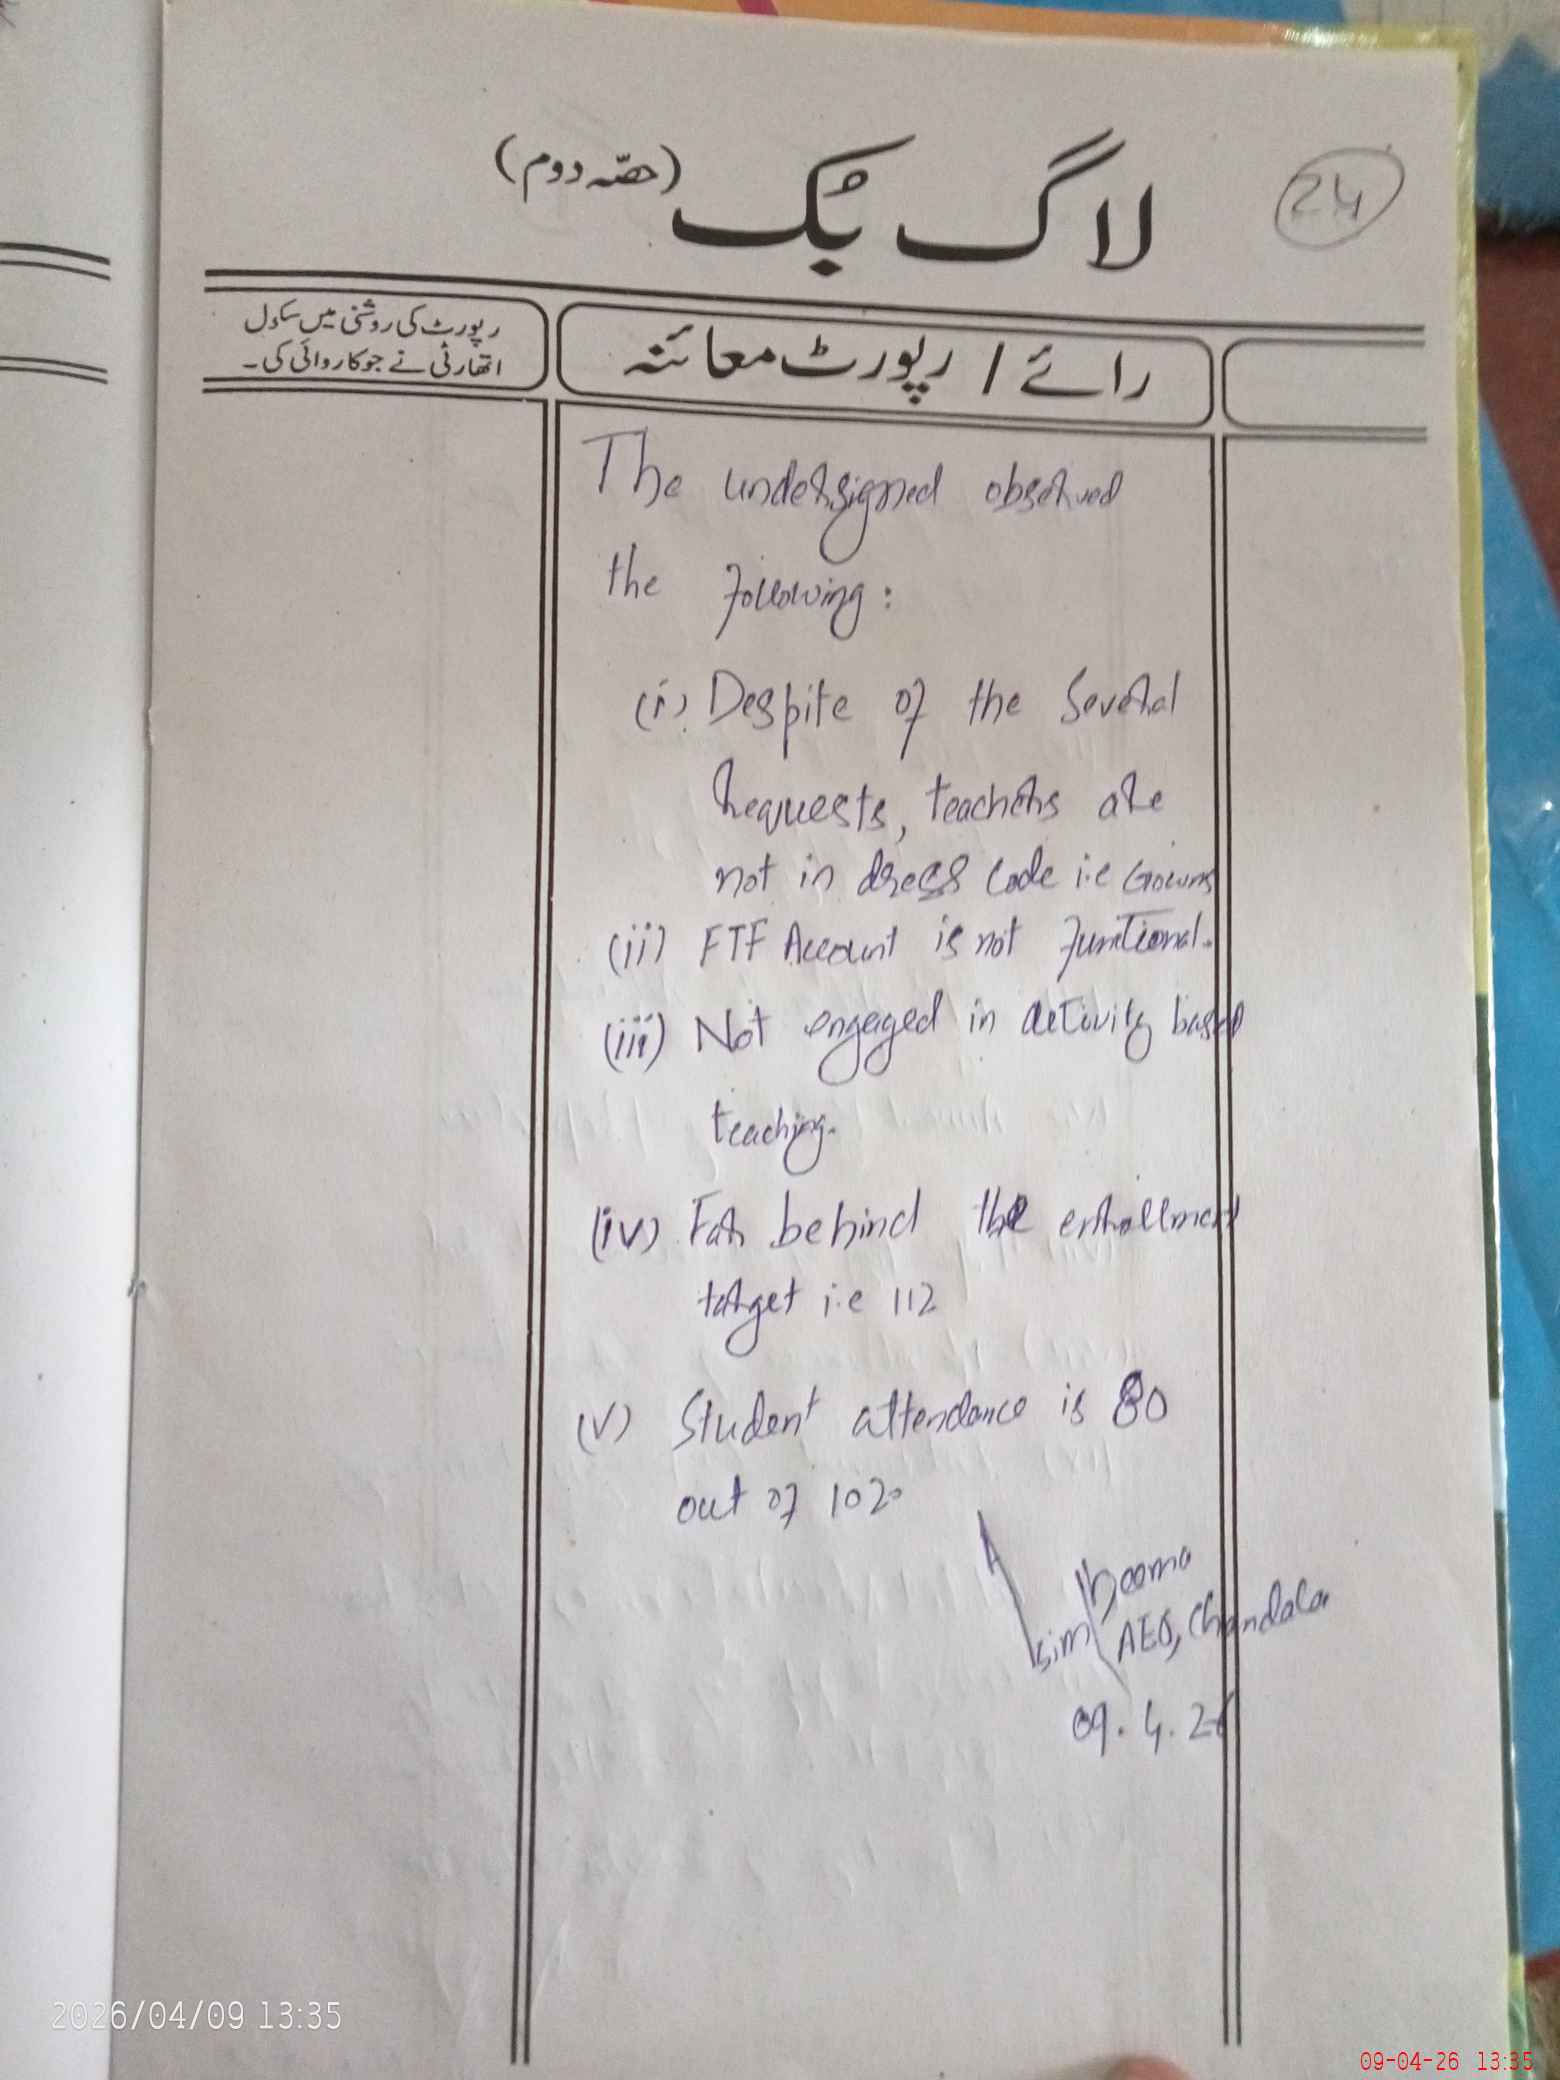 لاگ بُک (حصّہ دوم)
24
رپورٹ کی روشنی میں سکول
اتھارٹی نے جو کاروائی کی۔
رائے / رپورٹ معائنہ
The undersigned observed
the following:
(i) Despite of the several
requests, teachers are
not in dress code i.e Gowns
(ii) FTF Account is not functional.
(iii) Not engaged in activity based
teaching.
(iv) Far behind the enrollment
target i.e 112
(v) Student attendance is 80
out of 102.
Asim
AEO, Chandala
09.4.26
2026/04/09 13:35
09-04-26 13:35